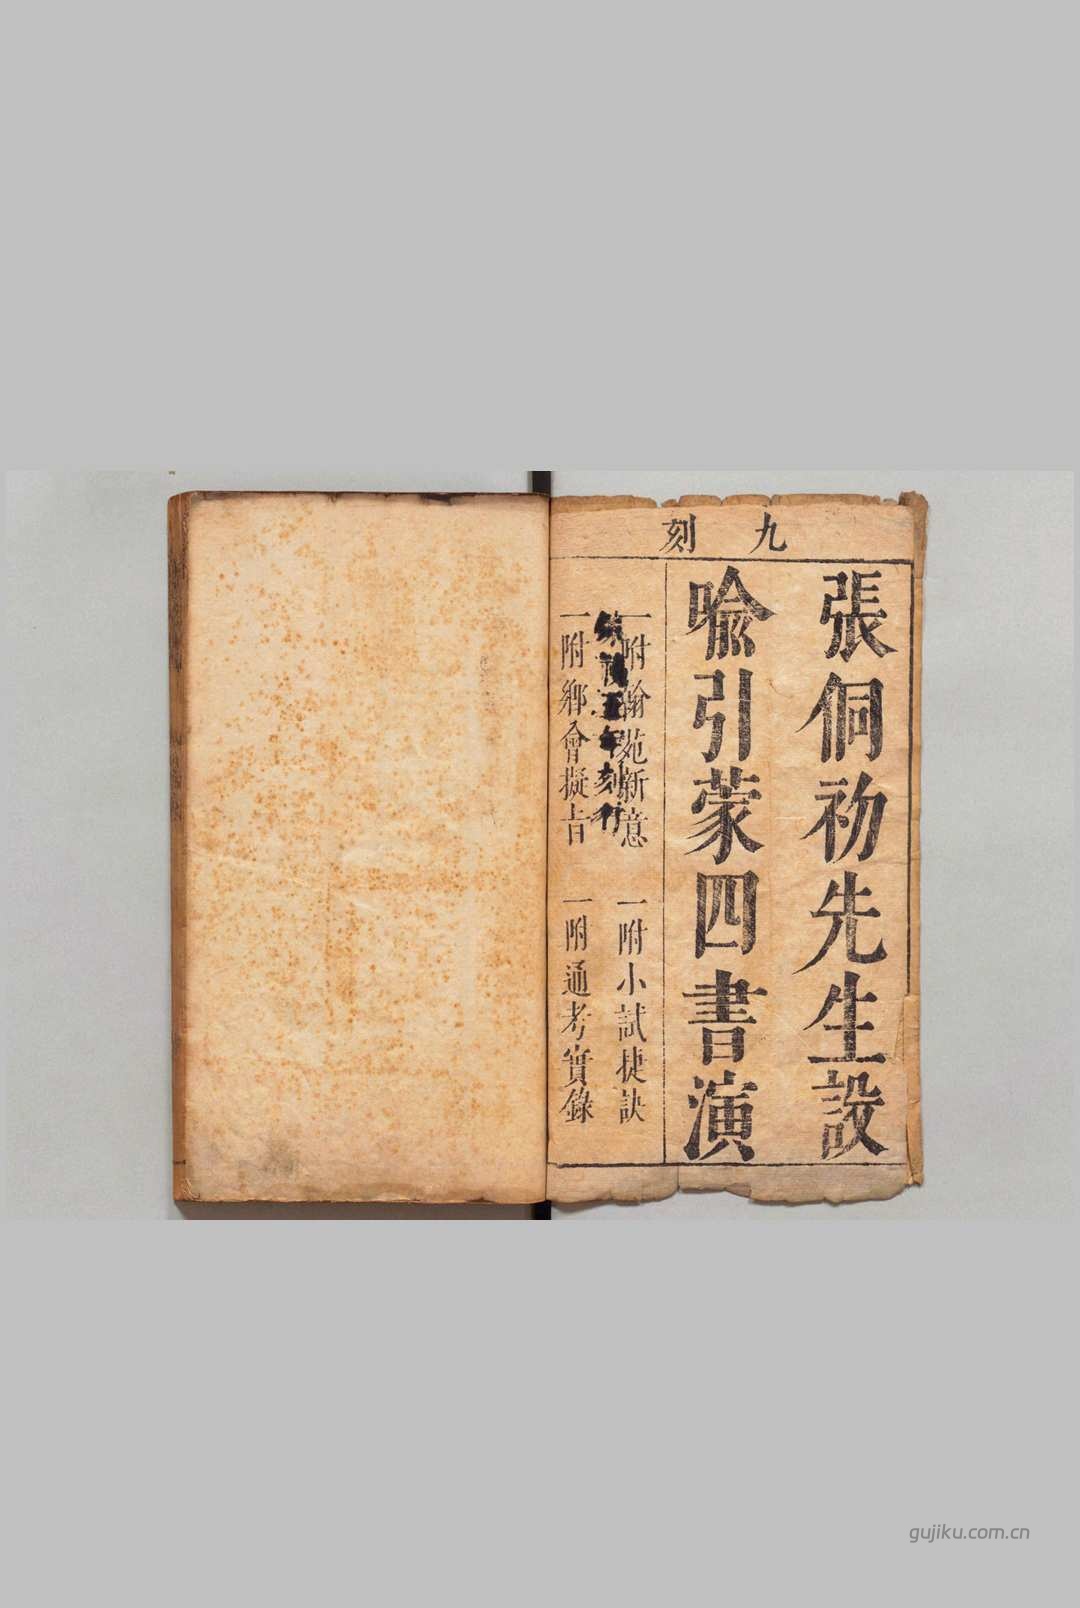 九刻
張侗初先生設
喻引蒙四書演
一附翰苑新意
一附小試捷訣
五年刻行
一附鄉會擬旨
一附通考實錄
gujiku.com.cn